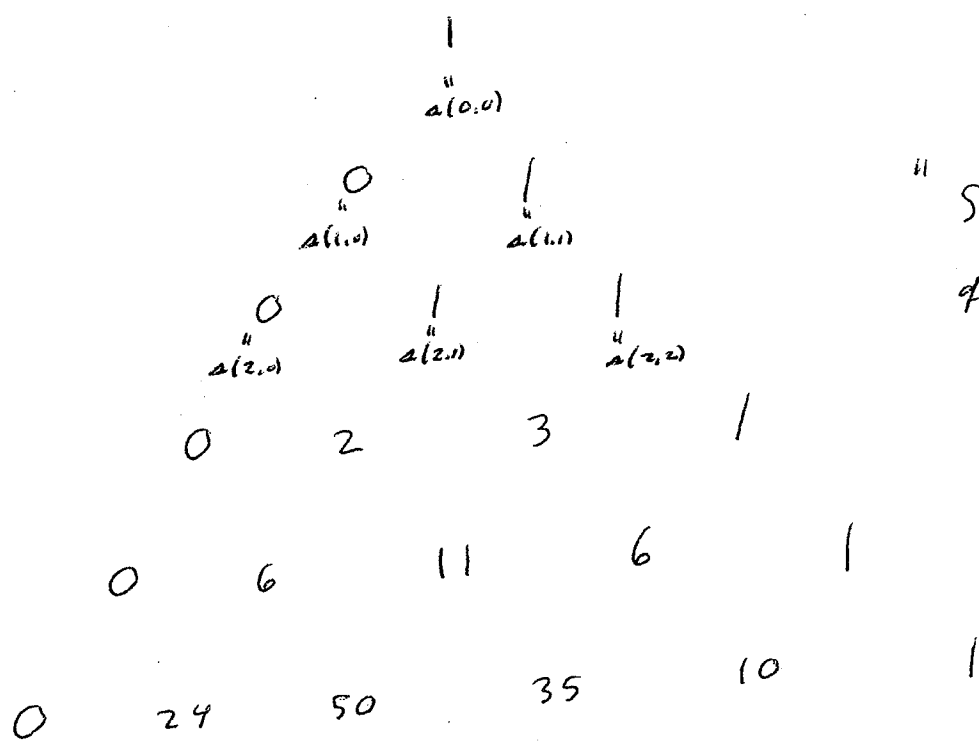 1
"
s(0,0)
0 1 "
" " S
s(1,0) s(1,1)
0 1 1
" " "
s(2,0) s(2,1) s(2,2)
0 2 3 1
0 6 11 6 1
0 24 50 35 10 1